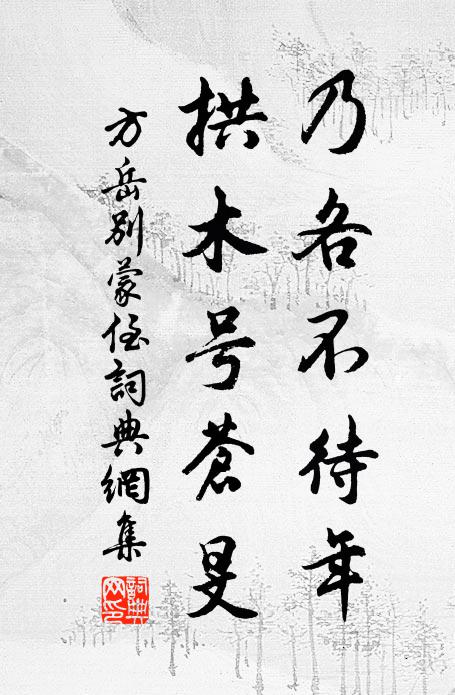 乃各不待年
拱木号苍旻
方岳别蒙侄詞典網集
詞典網印